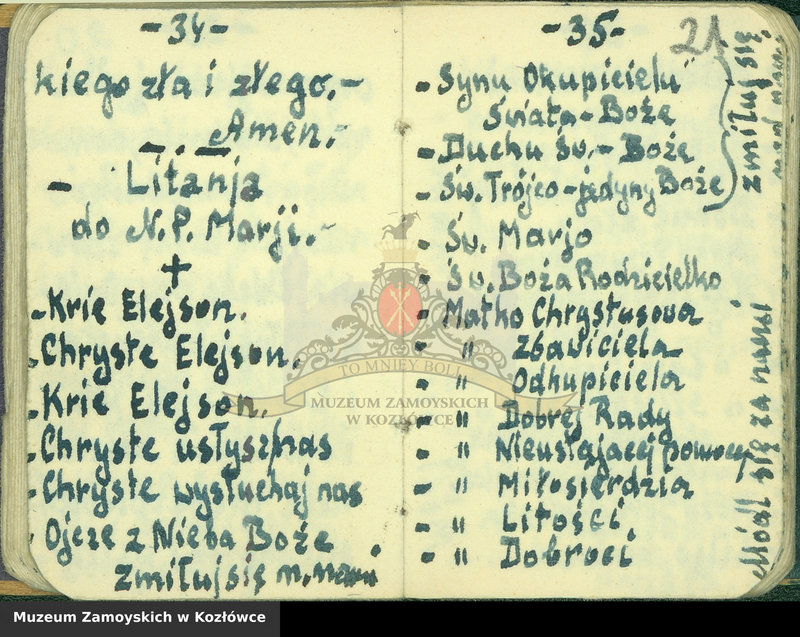 -34-
kiego zła i złego.-
Amen.-
- Litanja
do N.P. Marji.-
- Krie Elejson.
- Chryste Elejson.
- Krie Elejson.
- Chryste usłysz nas
- Chryste wysłuchaj nas
- Ojcze z Nieba Boże
zmiłuj się n. nami
-35-
21
- Synu Okupicielu
Świata - Boże
- Duchu Św. - Boże
- Św. Trójco - jedyny Boże
zmiłuj się
nad nami
- Św. Marjo
- Św. Boża Rodzicielko
- Matko Chrystusowa
- " Zbawiciela
- " Odkupiciela
- " Dobrej Rady
- " Nieustającej pomocy
- " Miłosierdzia
- " Litości
- " Dobroci
Módl się za nami
TO MNIEY BOLI
MUZEUM ZAMOYSKICH
W KOZŁÓWCE
Muzeum Zamoyskich w Kozłówce